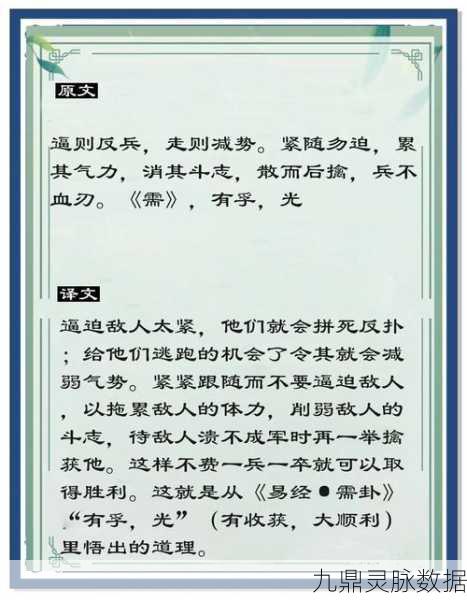 原文
逼则反兵，走则减势。紧随勿迫，累
其气力，消其斗志，散而后擒，兵不
血刃。《需》，有孚，光
译文
逼迫敌人太紧，他们就会拼死反扑
；给他们逃跑的机会了令其就会减
弱气势。紧紧跟随而不要逼迫敌人
，以拖累敌人的体力，削弱敌人的
斗志，待敌人溃不成军时再一举擒
获他。这样不费一兵一卒就可以取
得胜利。这就是从《易经●需卦》
“有孚，光”（有收获，大顺利）
里悟出的道理。
九鼎灵脉数据